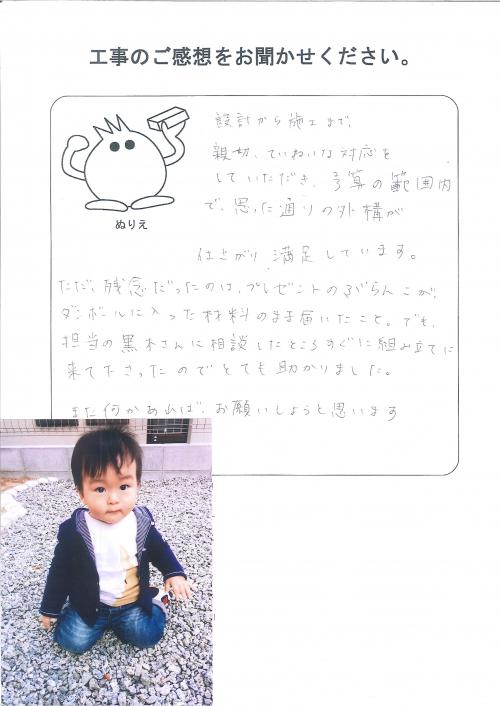 工事のご感想をお聞かせください。
ぬりえ
設計から施工まで、
親切、ていねいな対応を
していただき、予算の範囲内
で、思った通りの外構が
仕上がり、満足しています。
ただ、残念だったのは、プレゼントのぶらんこが、
ダンボールに入った材料のまま届いたこと。でも、
担当の黒木さんに相談したところすぐに組み立てに
来て下さったのでとても助かりました。
また何かあれば、お願いしようと思います